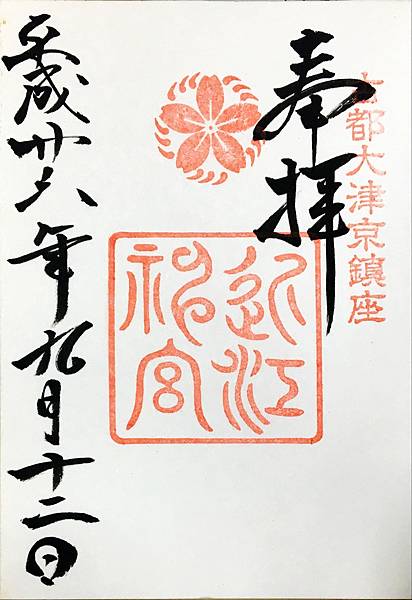 古都大津京鎮座
奉拝
近江
神宮
平成廿六年九月十二日